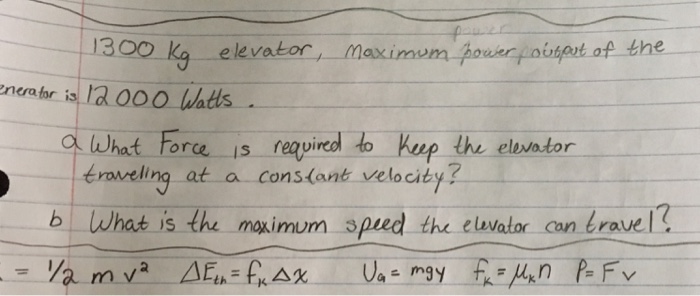 1300 Kg elevator, Maximum power output of the
enerator is 12000 Watts.
a What Force is required to keep the elevator
traveling at a constant velocity?
b What is the maximum speed the elevator can travel?
= 1/2 m v² ΔEth = fk Δx Ug = mgy fk = μkn P = Fv